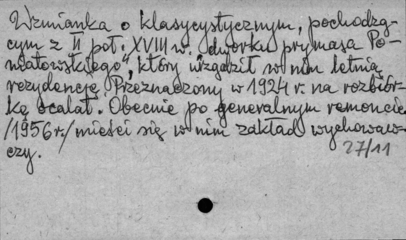 Wzmianka o klasycystycznym, pochodzą-
cym z II poł. XVIII w. "dworku prymasa Po-
niatowskiego", który urządził w nim letnią
rezydencję. Przeznaczony w 1924 r. na rozbiór-
kę ocalał. Obecnie po generalnym remoncie
/1956 r./ mieści się w nim zakład wychowaw-
czy.
27/11